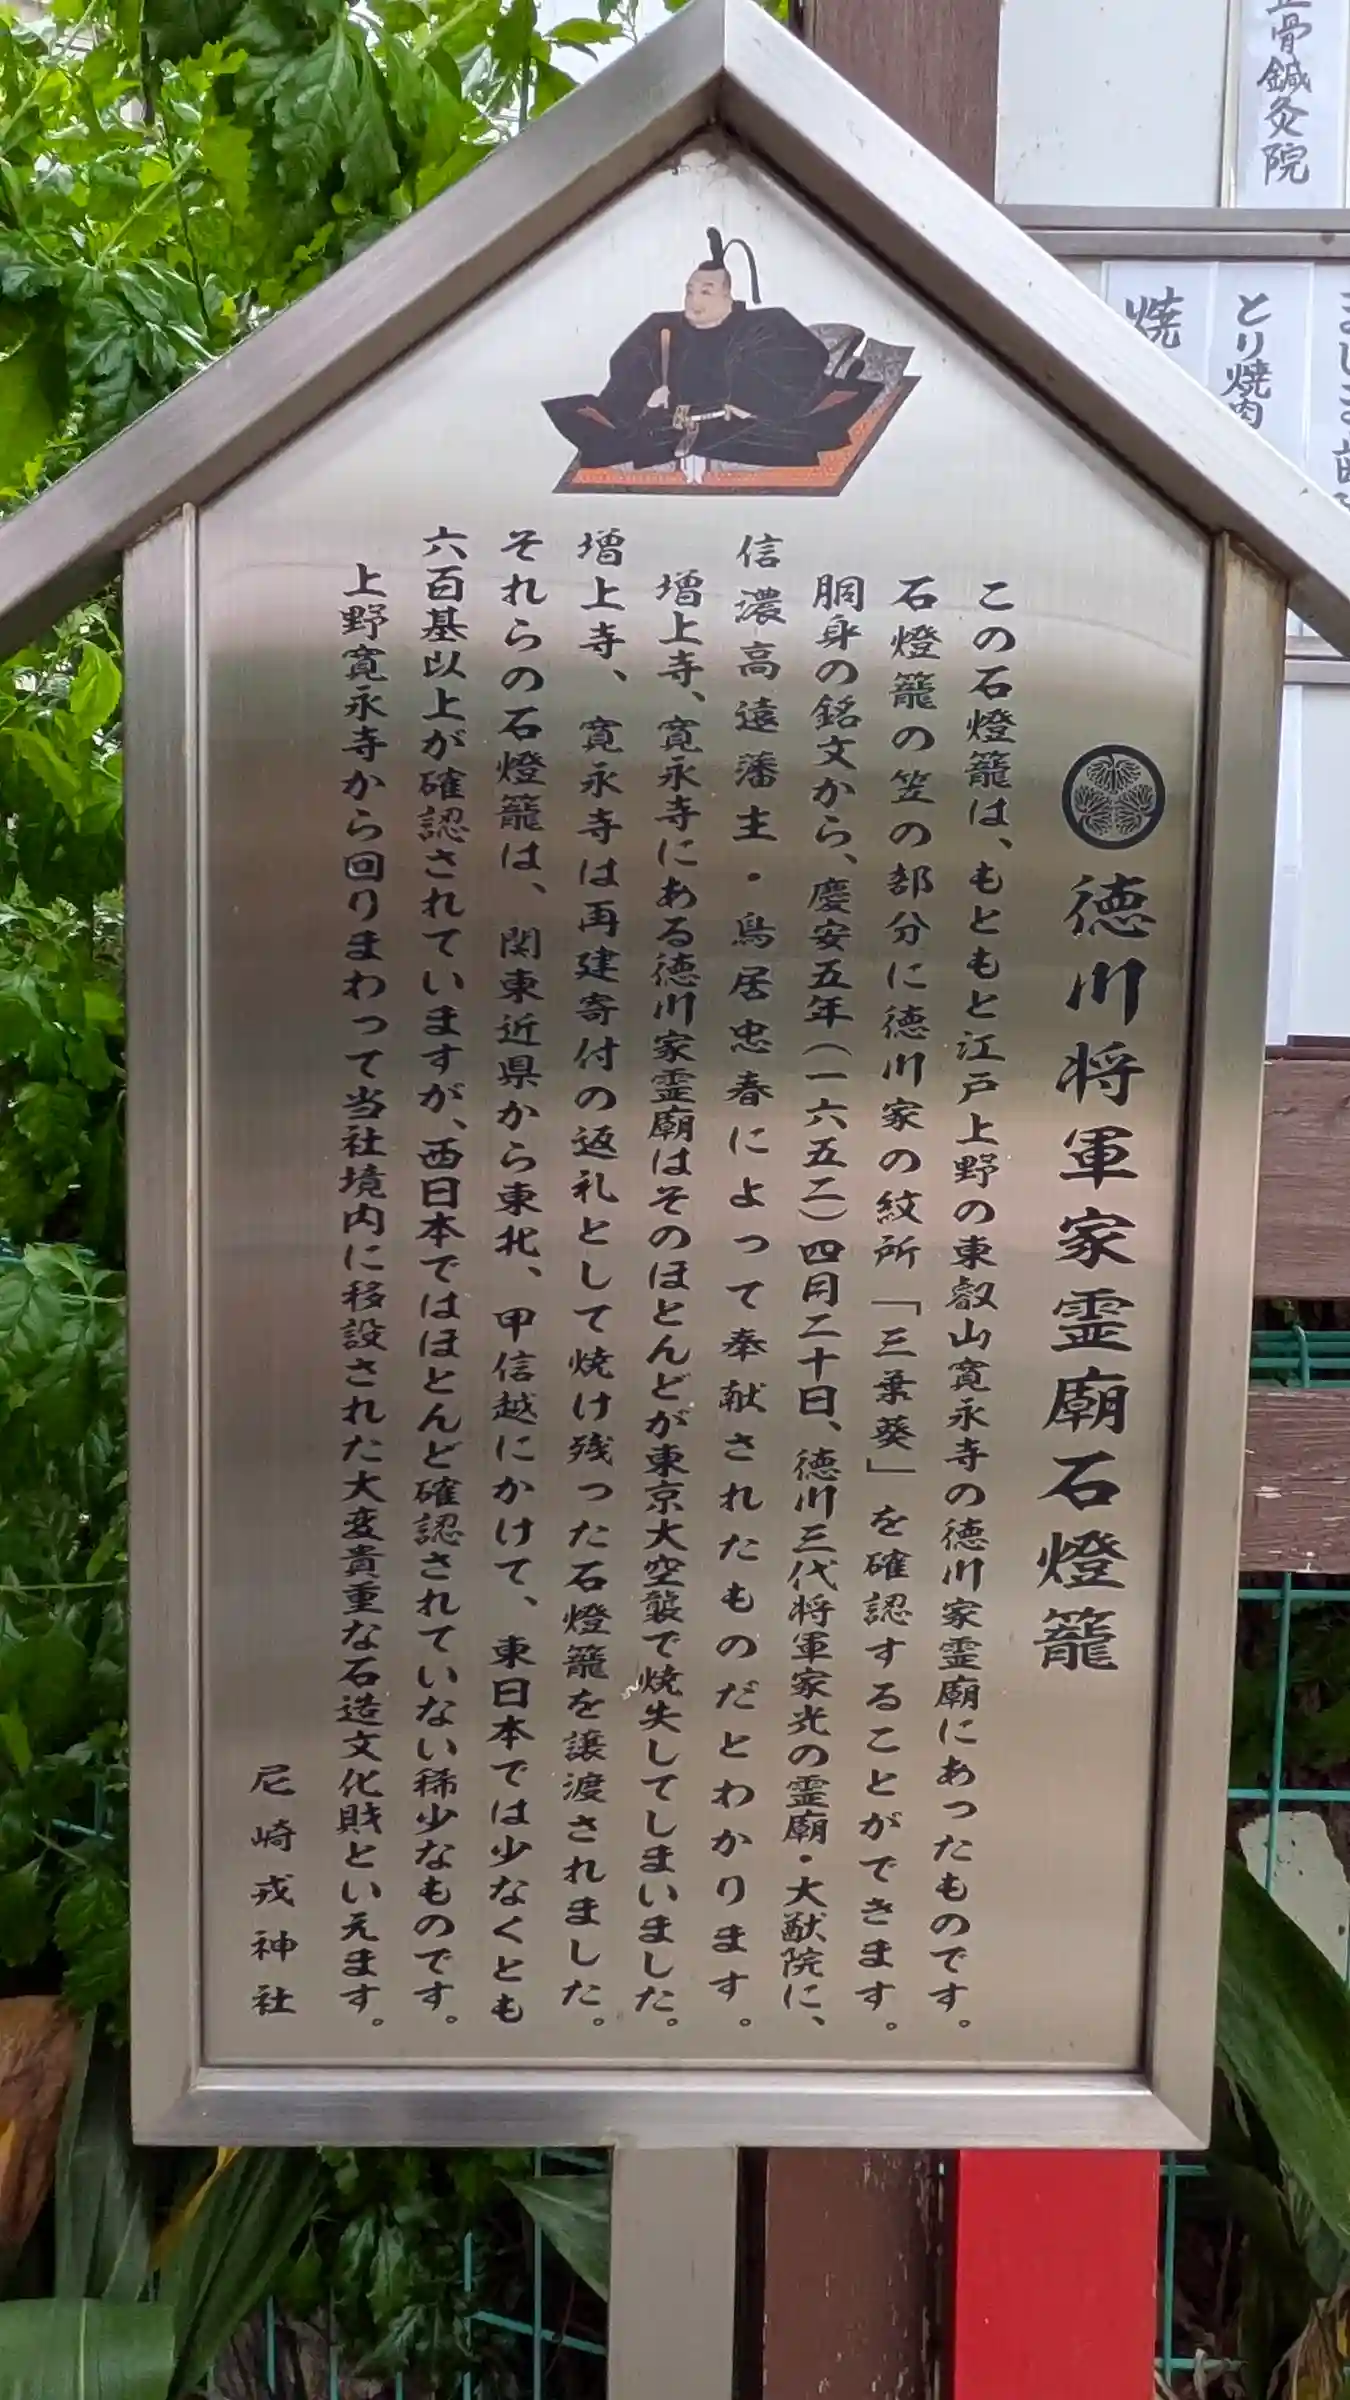 徳川将軍家霊廟石燈籠
この石燈籠は、もともと江戸上野の東叡山寛永寺の徳川家霊廟にあったものです。
石燈籠の笠の部分に徳川家の紋所「三葉葵」を確認することができます。
胴身の銘文から、慶安五年(一六五二)四月二十日、徳川三代将軍家光の霊廟・大猷院に、
信濃高遠藩主・鳥居忠春によって奉献されたものだとわかります。
増上寺、寛永寺にある徳川家霊廟はそのほとんどが東京大空襲で焼失してしまいました。
増上寺、寛永寺は再建寄付の返礼として焼け残った石燈籠を譲渡されました。
それらの石燈籠は、関東近県から東北、甲信越にかけて、東日本では少なくとも
六百基以上が確認されていますが、西日本ではほとんど確認されていない稀少なものです。
上野寛永寺から回りまわって当社境内に移設された大変貴重な石造文化財といえます。
尼崎戎神社
骨鍼灸院
とり焼肉
焼